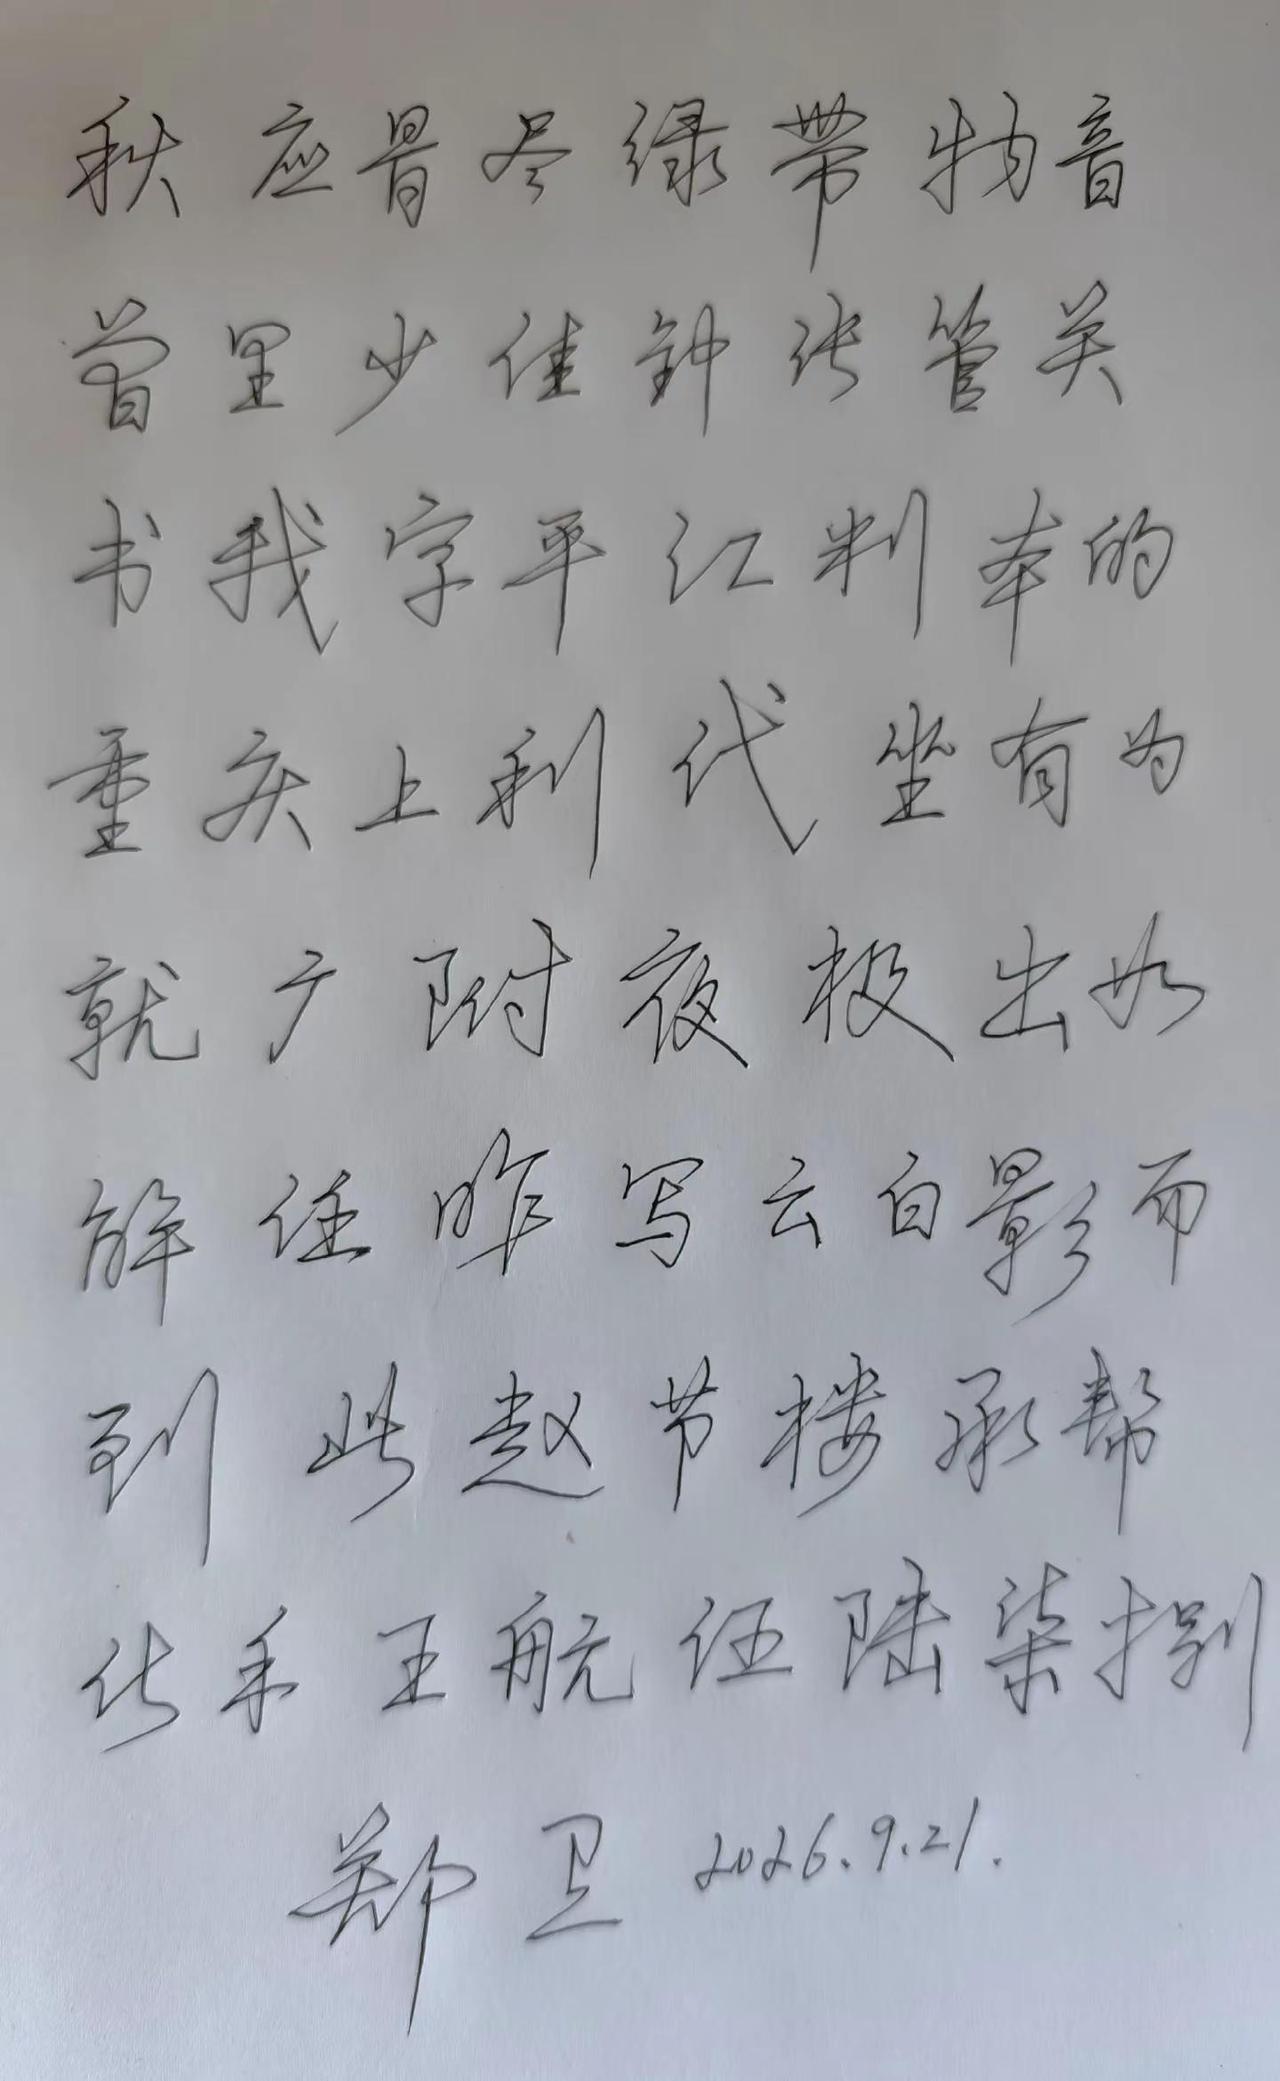 秋应骨尽绿带物音
曾里少佳钟张管关
书我字平江判本的
重庆上利代坐有为
就广附夜极出如
解任昨写云白影而
到此赵节楼承帮
华手王航伍陆柒捌
郑卫 2026.9.21.